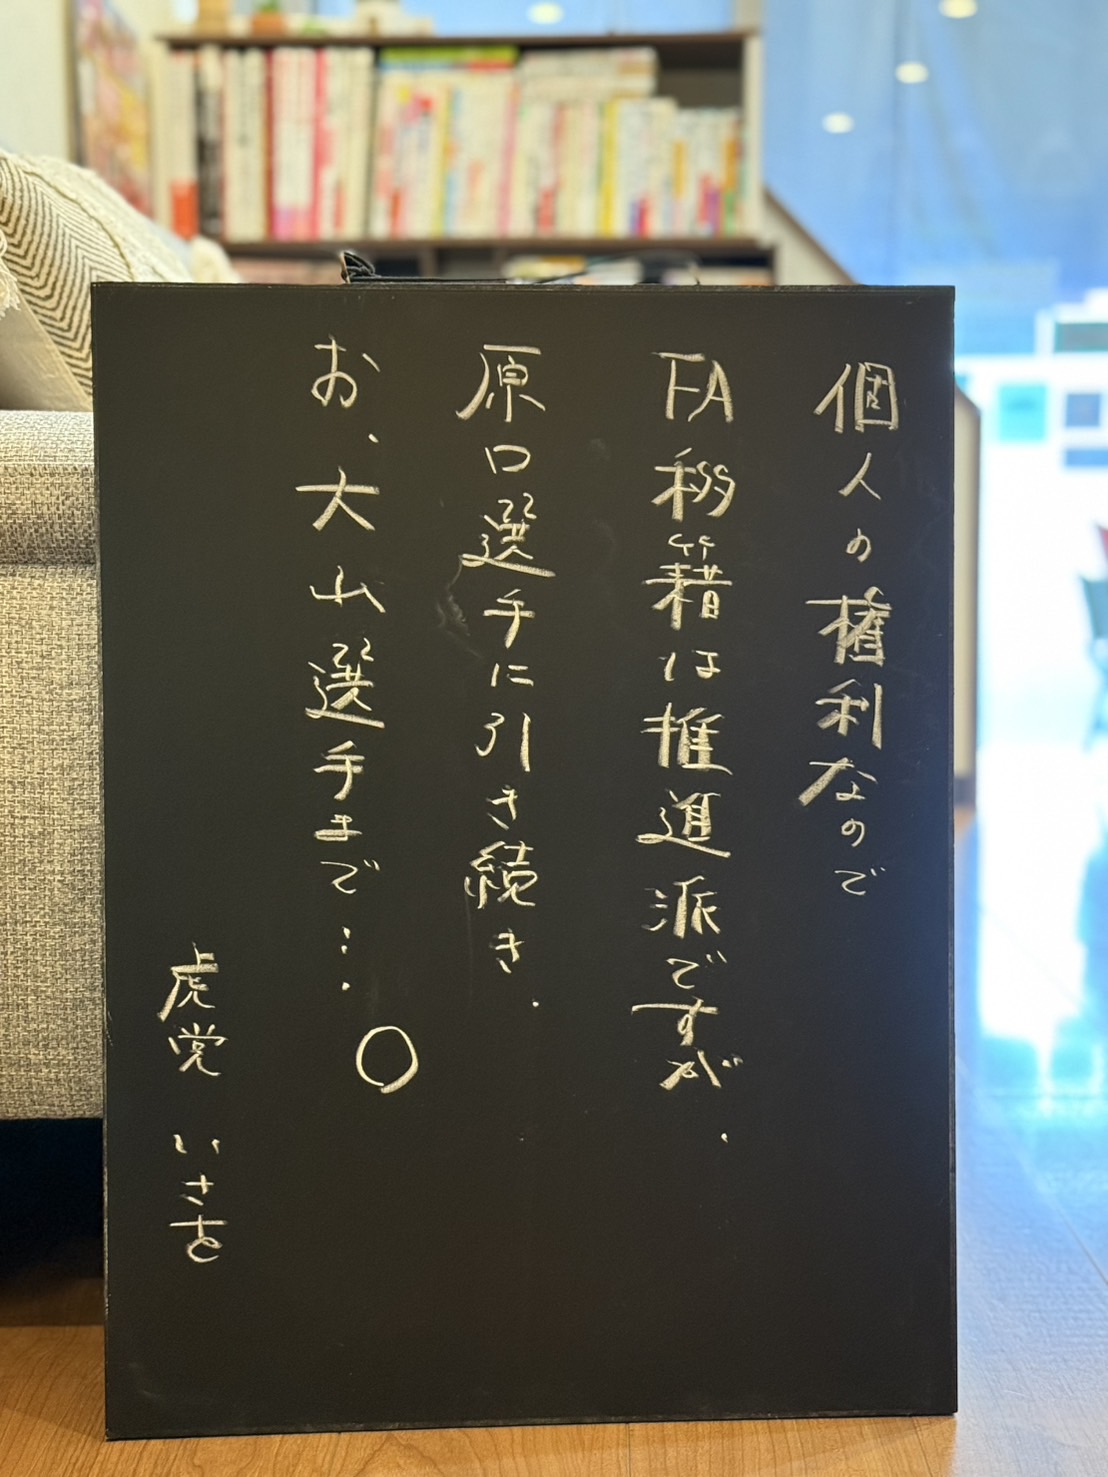 個人の権利なので
FA移籍は推進派ですが、
原口選手に引き続き、
お、大山選手まで…。
虎党 いさを